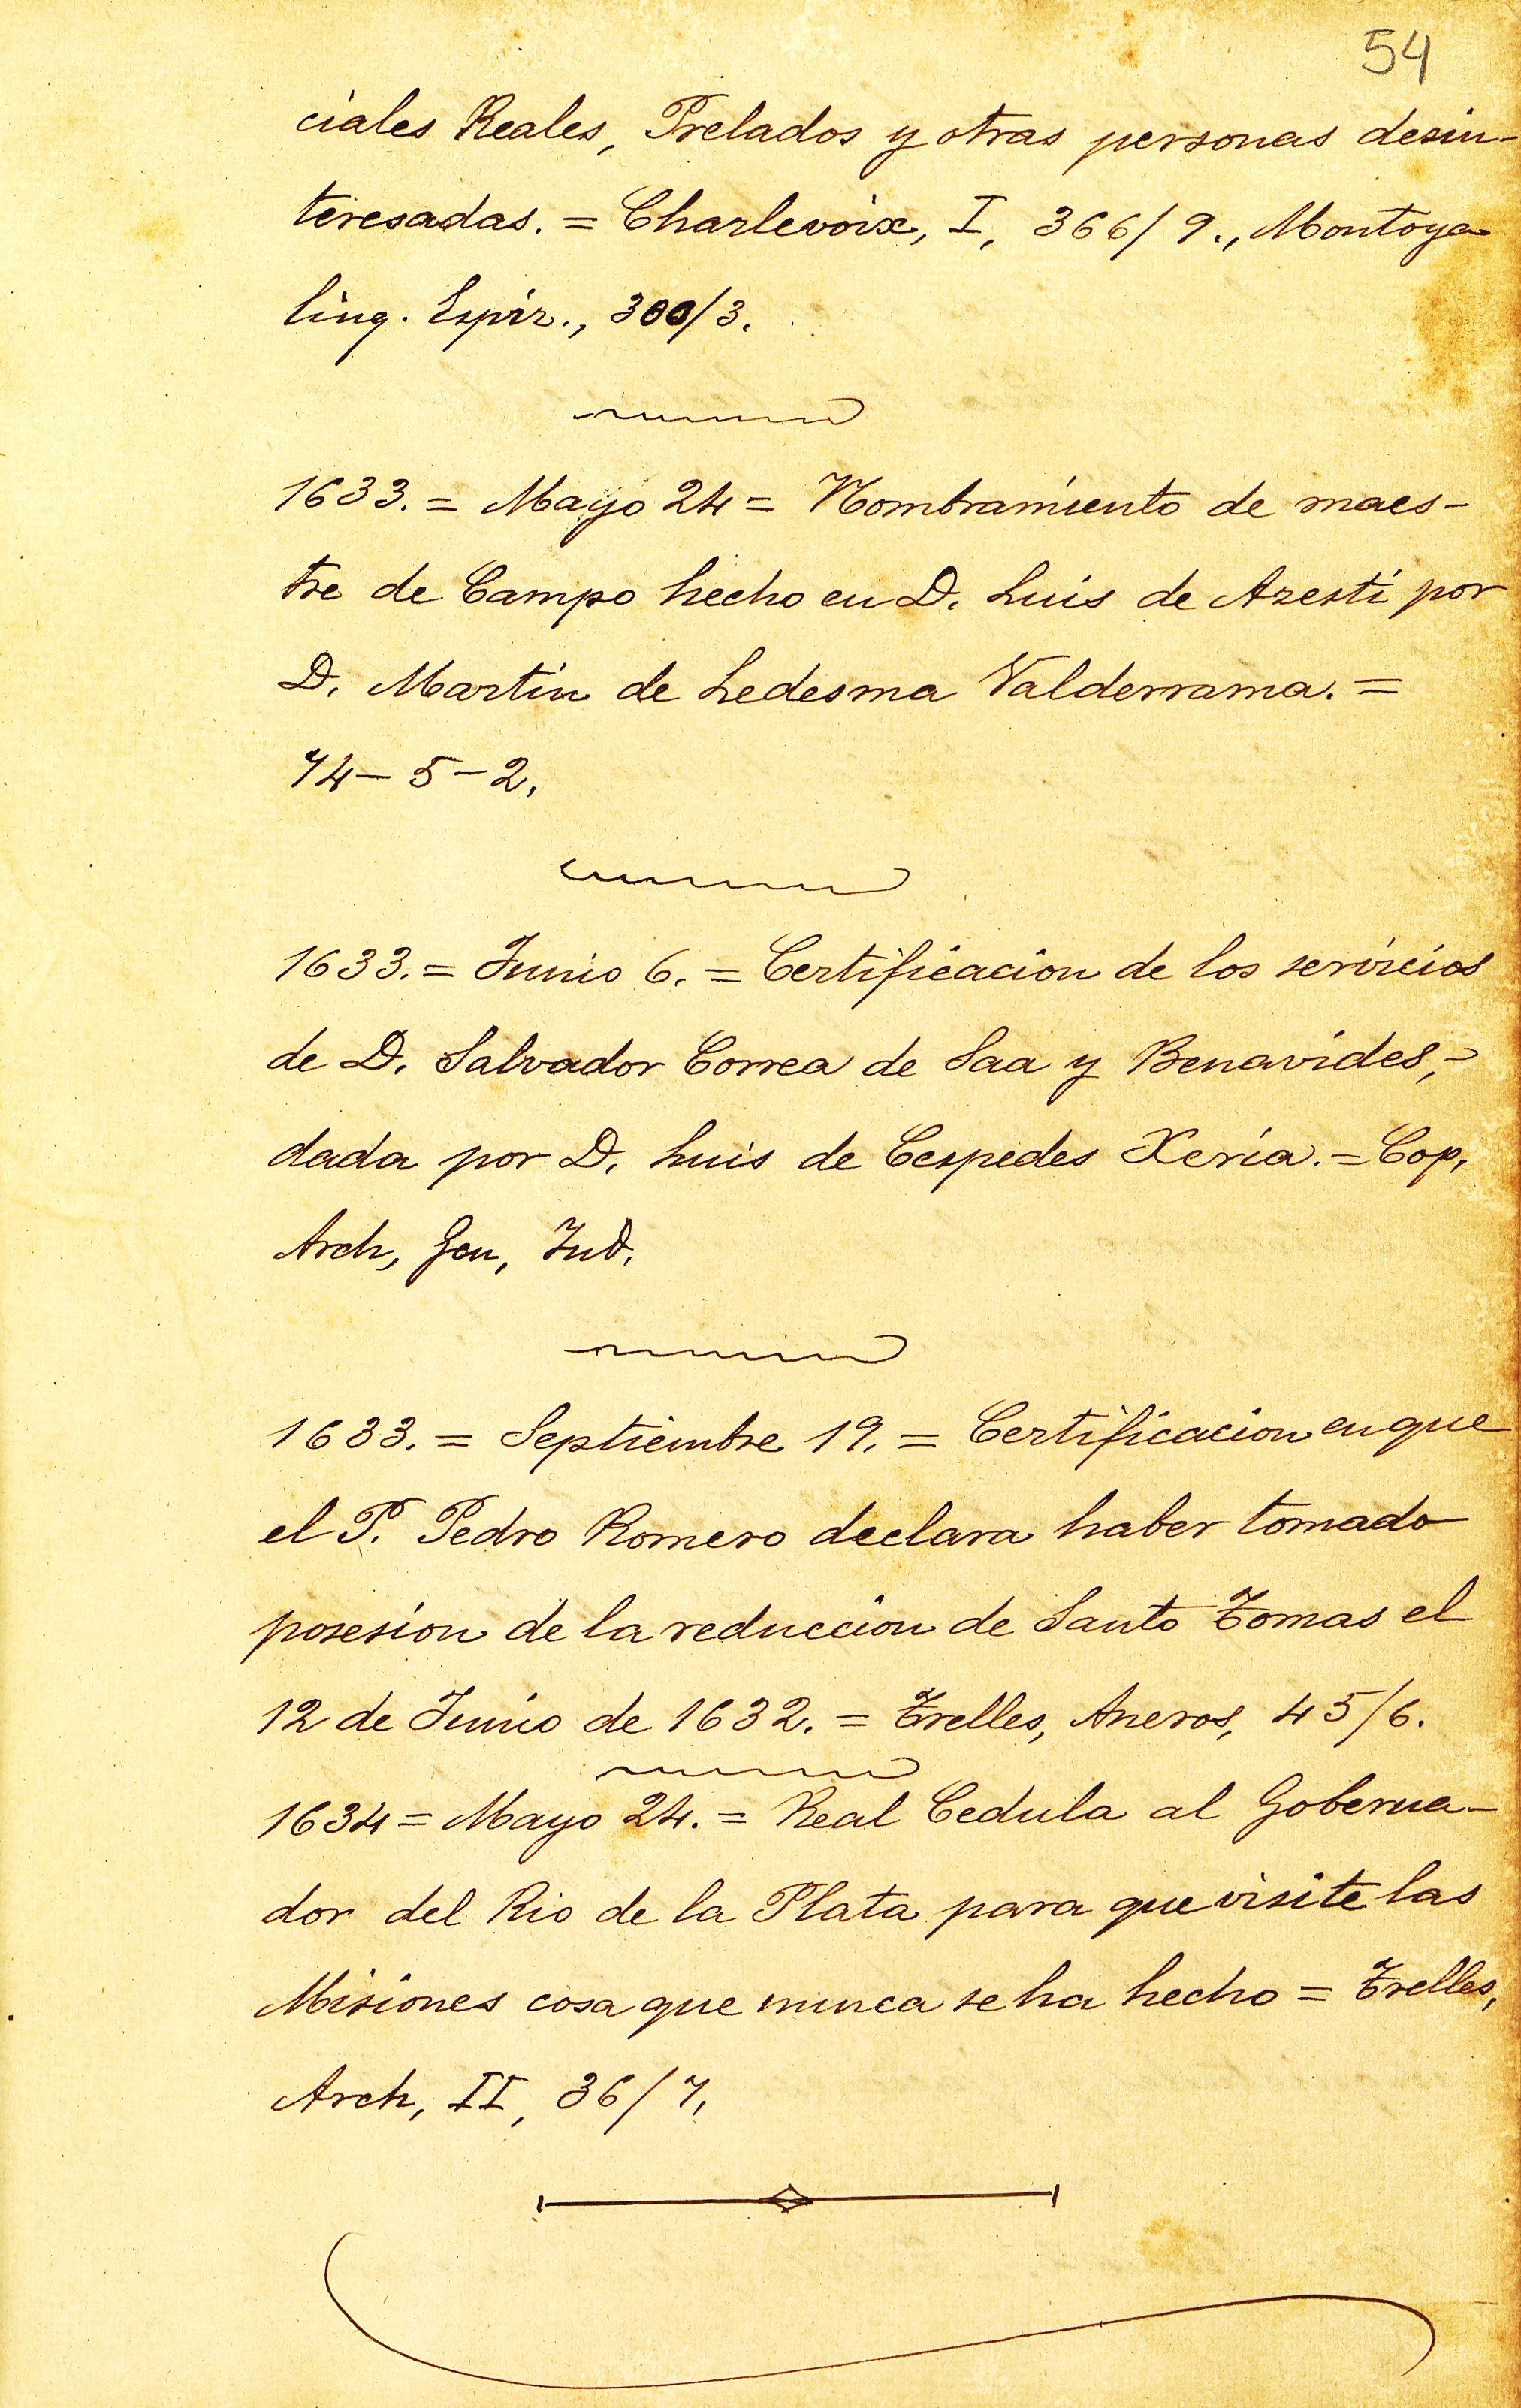 54
ciales Reales, Prelados y otras personas desin-
teresadas. = Charlevoix, I, 366/9., Montoya
ling. Espir., 300/3.
1633. = Mayo 24 = Nombramiento de maes-
tre de Campo hecho en D. Luis de Azesti por
D. Martin de Ledesma Valderrama. =
74-5-2.
1633. = Junio 6. = Certificacion de los servicios
de D. Salvador Correa de Saa y Benavides,
dada por D. Luis de Cespedes Xeria. = Cop.
Arch, Gen, Ind.
1633. = Septiembre 19. = Certificacion en que
el P. Pedro Romero declara haber tomado
posesion de la reduccion de Santo Tomas el
12 de Junio de 1632. = Trelles, Aneros, 45/6.
1634 = Mayo 24. = Real Cedula al Goberna-
dor del Rio de la Plata para que visite las
Misiones cosa que nunca se ha hecho = Trelles,
Arch, II, 36/7,